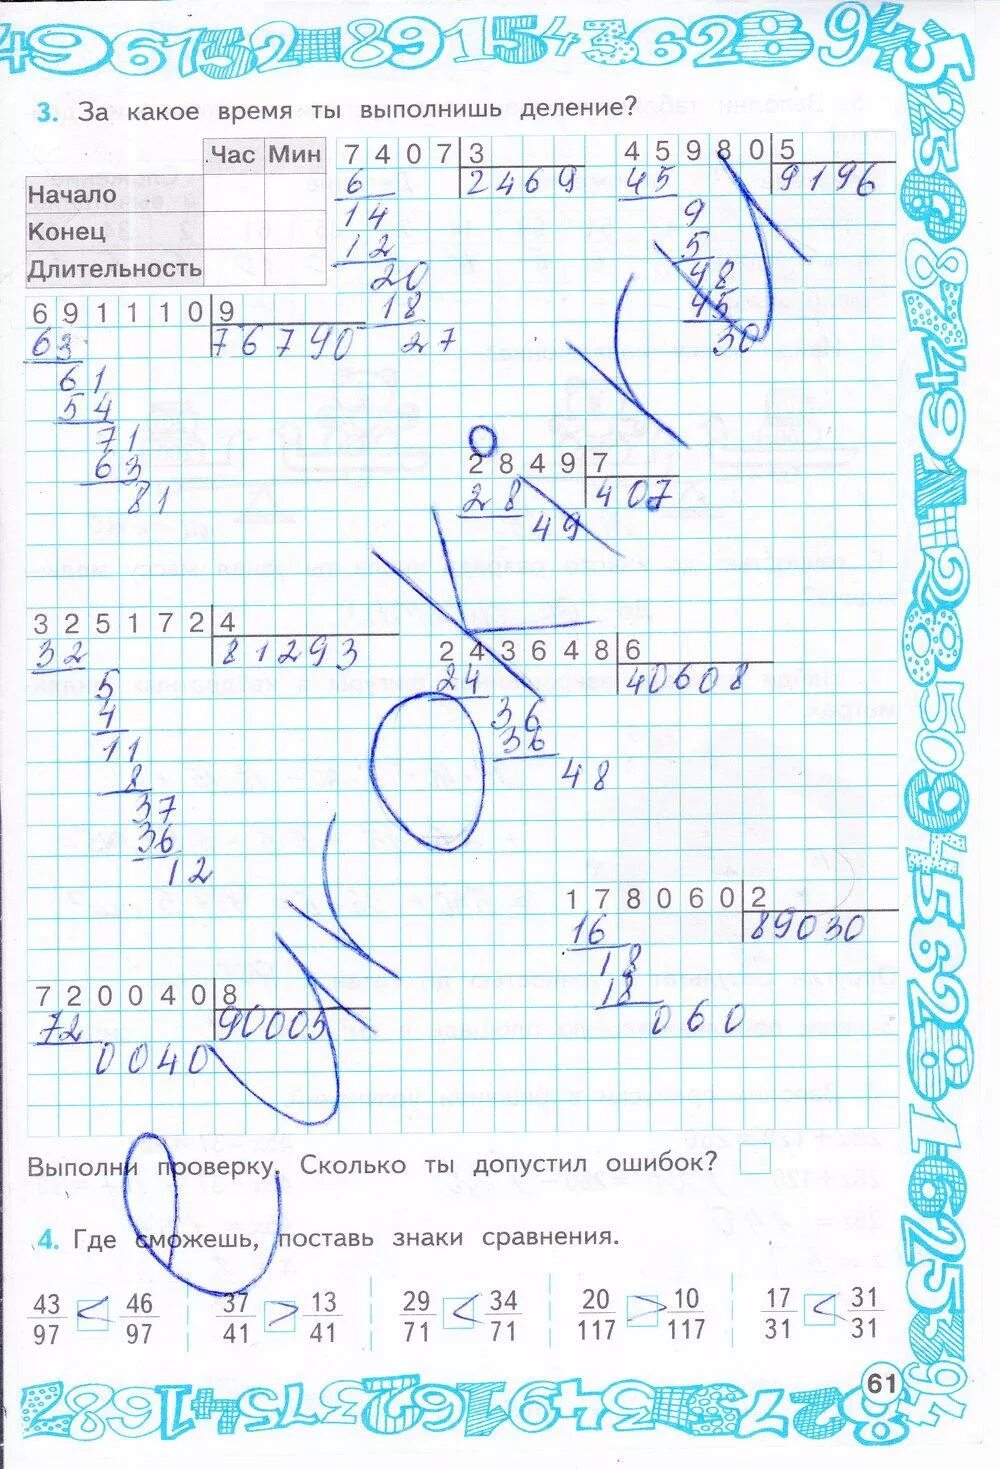 3. За какое время ты выполнишь деление?
Час Мин
Начало
Конец
Длительность
7407 3
6 2469
14
12
20
18
27
45980 5
45 9196
9
5
48
45
30
691110 9
63 76790
61
54
71
63
81
2849 7
28 407
49
325172 4
32 81293
5
4
11
8
37
36
12
243648 6
24 40608
36
36
48
178060 2
16 89030
18
18
060
720040 8
72 90005
0040
Выполни проверку. Сколько ты допустил ошибок?
4. Где сможешь, поставь знаки сравнения.
43/97 < 46/97 37/41 > 13/41 29/71 < 34/71 20/117 > 10/117 17/31 < 31/31
61